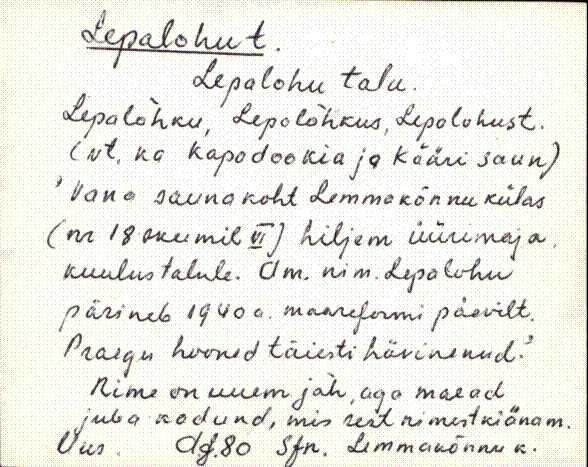 Lepalohu t.
Lepalohu talu.
Lepalõhku, Lepolõhkus, Lepolohust.
(vt. ka Kapadookia ja Kääri saun)
'Vana saunakoht Lemmakõnnu külas
(nr 18 skeemil VI) hiljem üürimaja.
kuulus talule. Am. nim. Lepalohu
pärineb 1940 a. maareformi päevilt.
Praegu hooned täiesti hävinenud.'
Nime on uuem jäh, aga maead
juba kodund, mis sest nimest kiänam.
Uus. Af.80 Sjn. Lemmakõnnu k.